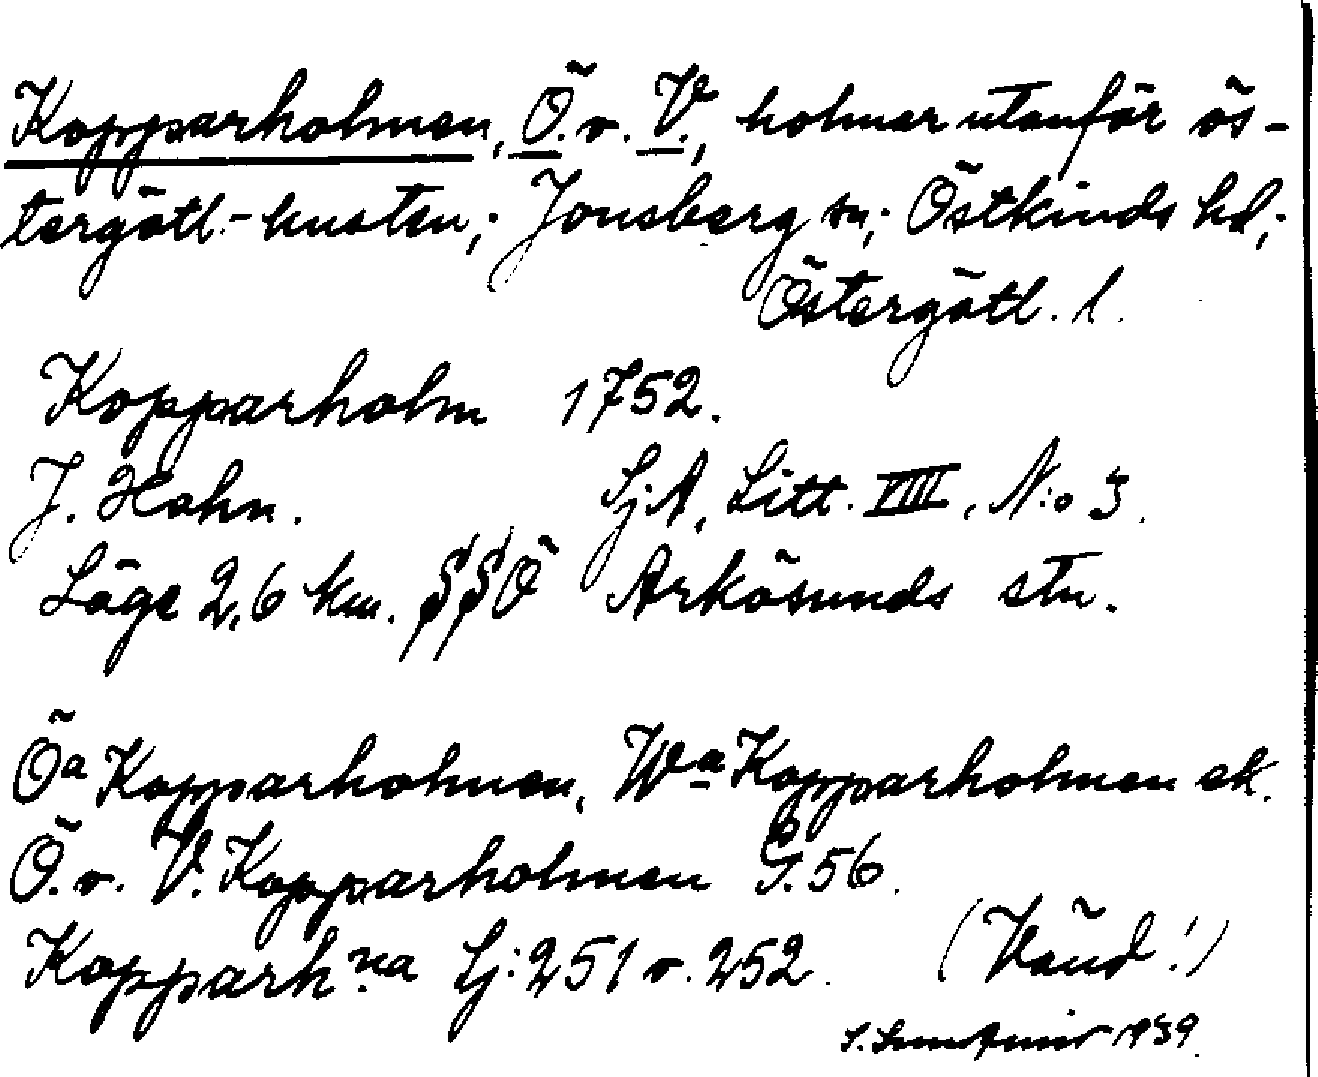 Kopparholmen, Ö. o. V., holmar utanför ös-
tergötl.-kusten; Jonsberg sn; Östkinds hd;
Östergötl. l.
Kopparholm 1752.
J. Hahn. Sj.A, Litt. VIII, N:o 3.
Läge 2,6 km. SSÖ Arkösunds stn.
Öa Kopparholmen, Wa Kopparholmen ek.
Ö. o. V. Kopparholmen G. 56.
Kopparh:na Sj: 251 o. 252. (Vänd!)
1939